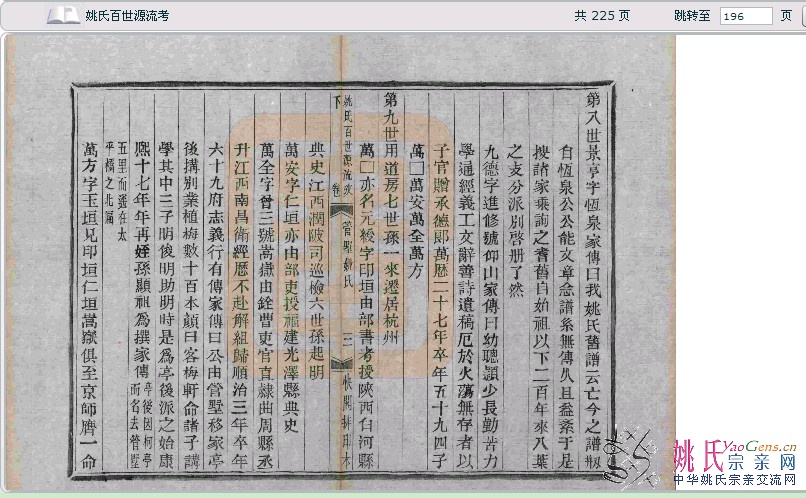 姚氏百世源流考
共 225 页
跳转至 196 页
第八世景亨字恆泉家傳曰我姚氏舊譜云亡今之譜刱
自恆泉公公能文章念譜系無傳久且益紊于是
搜諸家乘詢之耆舊自始祖以下二百年來八葉
之支分派別啓册了然
九德字進修號仰山家傳曰幼聰頴少長勤苦力
學通經義工文辭善詩遺稿厄於火蕩無存者以
子官贈承德郎萬曆二十七年卒年五十九四子
萬□萬安萬全萬方
第九世用道房七世孫一來遷居杭州
萬□亦名元綬字印垣由部書考授陝西白河縣
姚氏百世源流攷 卷下 管墅姚氏 三 快閣排印本
典史江西潤陂司巡檢六世孫起明
萬安字仁垣亦由部吏授福建光澤縣典史
萬全字晉三號嵩嶽由銓曹吏官直隷曲周縣丞
升江西南昌衛經歷不赴解組歸順治三年卒年
六十九府志義行有傳家傳曰公由管墅移家亭
後搆別業植梅數十百本顏曰客梅軒命諸子講
學其中三子明俊明助明時是爲亭後派之始康
熙十七年年再姪孫顯祖爲撰家傳亭後因柯亭而名去管墅
五里而遙在太平橋之北滙
萬方字玉垣兄印垣仁垣嵩嶽俱至京師膺一命
姚氏宗亲网
YaoGens.cn
中华姚氏宗亲交流网